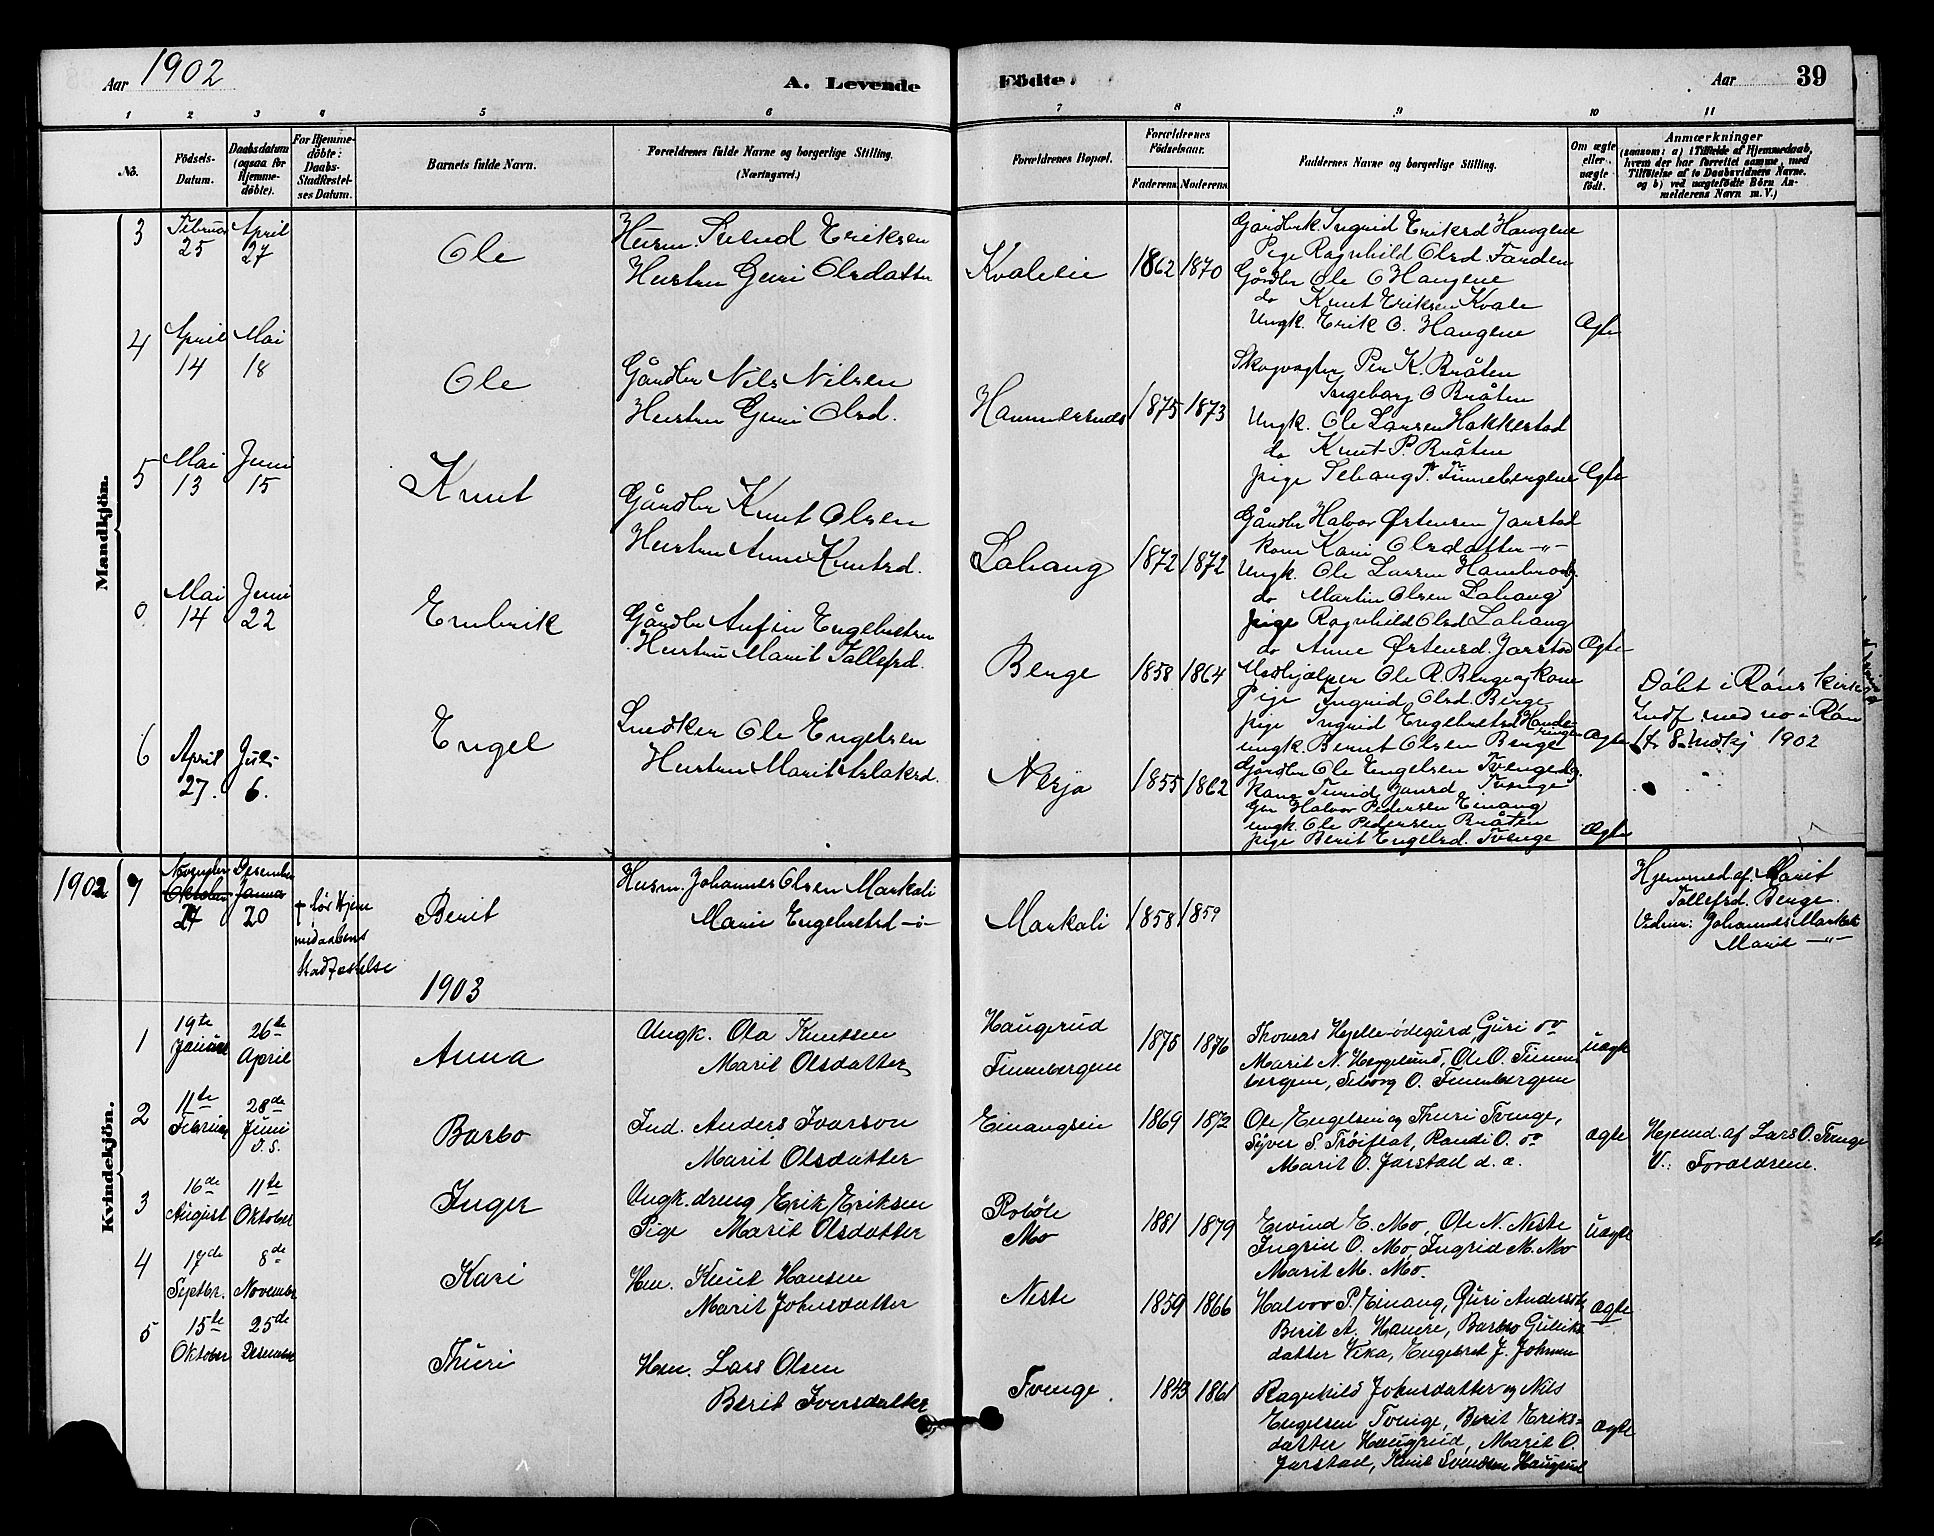 Aar 1902
A. Levende
Födte.
Aar
39
1 2 3 4 5 6 7 8 9 10 11
No.
Födsels-
Datum.
Daabsdatum
(ogsaa for
Hjemme-
döbte).
For Hjemme-
döbte:
Daabs-
Stadfæstel-
ses Datum.
Barnets fulde Navn.
Forældrenes fulde Navne og borgerlige Stilling.
(Næringsvei.)
Forældrenes Bopæl.
Forældrenes
Födselsaar.
Faderens. Moderens.
Faddernes Navne og borgerlige Stilling.
Om ægte
eller
uægte
födt.
Anmærkninger
(saasom: a) i Tilfælde af Hjemmedaab,
hvem der har forrettet samme, med
Tilföielse af to Daabsvidners Navne.
og b) ved uægtefödte Börn An-
melderens Navn m. V.)
Mandkjön.
3
Februar
25
April
27
Ole
Husm. Svend Eriksen
Hustru Guri Olsdatter
Kvaleeie
1862 1870
Gårdbrk. Ingrid Eriksd Haugene
Pige Ragnhild Olsd. Farden
Gårdbr Ole O Haugene
do Knut Eriksen Kvale
Ungk. Erik O. Haugene
Ægte
4
April
14
Mai
18
Ole
Gårdbr Nils Nilsen
Hustru Guri Olsd.
Hammersnes
1875 1873
Skogvogter Per K. Bråten
Ingeborg O Bråten
Ungk. Ole Larsen Hakkestad
do Knut P. Bråten
pige Sebjørg P. Finnebergene
Ægte
5
Mai
13
Juni
15
Knut
Gårdbr Knut Olsen
Hustru Anne Knutsd.
Lohaug
1872 1872
Gårdbr Halvor Østensen Jarstad
kone Kari Olsdatter -"-
Ungk. Ole Larsen
do Martin Olsen Lohaug
pige Ragnhild Olsd Lohaug
do Anne Østensd. Jarstad
Ægte
0
Mai
14
Juni
22
Embrik
Gårdbr Anfin Engebretsen
Hustru Marit Tollefsd.
Berge
1858 1864
Medhjælper Ole R Berge og kone
Pige Ingrid Olsd. Berge
pige Ingrid Engebretsd
ungk. Bernt Olsen Berge
Ægte
Döbt i Røns kirke
Indf. med no i Røn
1902
6
April
27.
Juli
6.
Engel
Snedker Ole Engelsen
Hustru Marit Aslaksd.
Nerjo
1855 1862
Gårdbr Ole Engelsen Tvenge og
kone Turid Jonsd. Tvenge
Gbr Halvor Pedersen Einang
ungk. Ole Pedersen Bråten
pige Berit Engelsd. Tvenge
Ægte
Kvindekjön.
1902 7
November
Oktober
27
Desember
Januar
20
† før Hjem
medaabens
Stadfæstelse
Berit
Husm. Johannes Olsen Markali
Marie Engebretsd -"-
Markali
1858 1859
Hjemmed. af Marit
Tollefsd. Berge.
Vidner: Johannes Markali
Marit -"-
1903
1
19te
Januar
26de
April
Anna
Ungk. Ola Knutsen
Marit Olsdatter
Haugerud
Finnebergene
1875 1876
Thomas Hjelle-ødegård, Guri do
Marit N. Heggelund, Ole O. Finne
bergene, Seborg O. Finnebergene
uægte
2
11te
Februar
28de
Juni
D. S.
Barbo
Ind. Anders Ivarson
Marit Olsdatter
Einangseie
1869 1872
Ole Engelsen og Thuri Tvenge,
Syver S. Trøiftat, Randi O. do
Marit O. Jarstad d. a.
ægte
Hjemd. af Lars O. Tvenge
V.: Forældrene.
3
16de
August
11te
Oktober
Inger
Ungk. dreng Erik Eriksen
Pige Marit Olsdatter
Robøle
Mo
1881 1879
Eivind E. Mo, Ole N. Neste
Ingrid O. Mo, Ingrid M. Mo
Marit M. Mo.
uægte
4
17de
Septbr.
8de
November
Kari
Hm. Knut Hansen
Marit Johnsdatter
Neste
1859 1866
Halvor P. Einang, Guri Andersdtr
Berit A. Haure, Barbro Guliks
datter Vika, Engebret J. Johnsen
ægte
5
15te
Oktober
25de
Desember
Thuri
Hm. Lars Olsen
Berit Iversdatter
Tvenge.
1843 1861
Ragnhild Johnsdatter og Nils
Engelsen Tvenge, Berit Eriks-
datter Haugrud, Marit O.
Jarstad, Knut Svendsen Haugrud
ægte